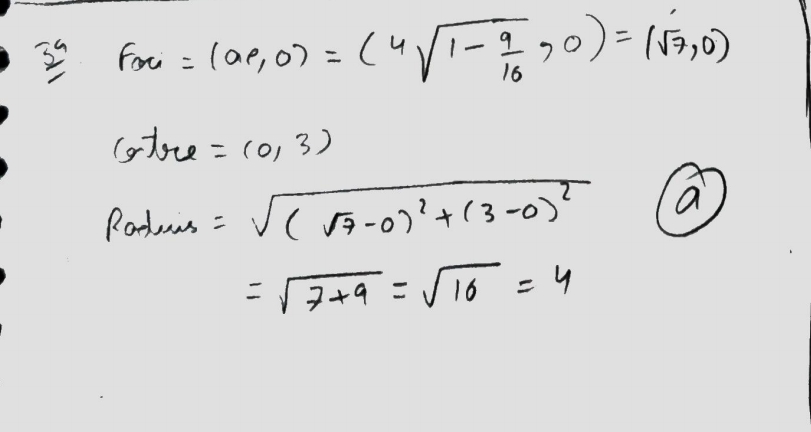 39 Foci = (ae, 0) = (4√(1 - 9/16), 0) = (√7, 0)
Centre = (0, 3)
Radius = √((√7-0)² + (3-0)²) (a)
= √(7+9) = √16 = 4